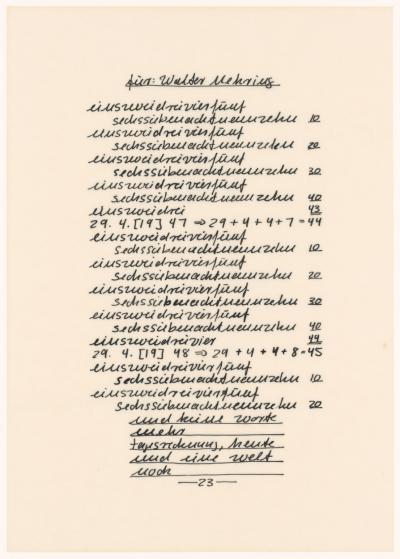 für: Walter Mehring
einszweidreivierfünf
sechssiebenachtneunzehn 10
einszweidreivierfünf
sechssiebenachtneunzehn 20
einszweidreivierfünf
sechssiebenachtneunzehn 30
einszweidreivierfünf
sechssiebenachtneunzehn 40
einszweidrei 43
29. 4. [19] 47 ⇒ 29 + 4 + 4 + 7 = 44
einszweidreivierfünf
sechssiebenachtneunzehn 10
einszweidreivierfünf
sechssiebenachtneunzehn 20
einszweidreivierfünf
sechssiebenachtneunzehn 30
einszweidreivierfünf
sechssiebenachtneunzehn 40
einszweidreivier 44
29. 4. [19] 48 ⇒ 29 + 4 + 4 + 8 = 45
einszweidreivierfünf
sechssiebenachtneunzehn 10
einszweidreivierfünf
sechssiebenachtneunzehn 20
und keine worte
mehr
tagsrechnung, heute
und eine welt
noch
—23—